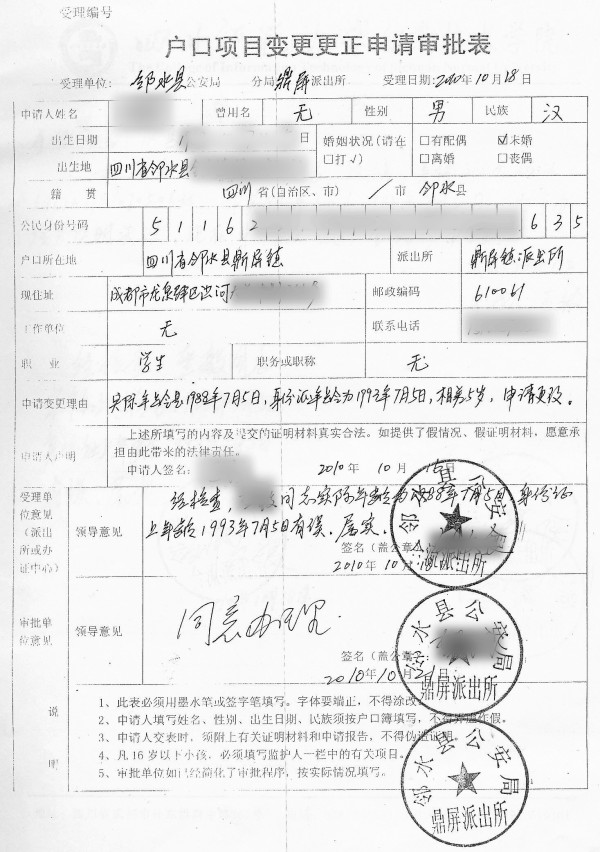 受理编号
户口项目变更更正申请审批表
受理单位: 邻水县公安局 分局鼎屏派出所 受理日期:2010年10月18日
申请人姓名 曾用名 无 性别 男 民族 汉
出生日期 1 日 婚姻状况(请在□打√) □有配偶 ☑未婚 □离婚 □丧偶
出生地 四川省邻水县
籍贯 四川省(自治区、市) / 市 邻水县
公民身份号码 5 1 1 6 2 6 3 5
户口所在地 四川省邻水县鼎屏镇 派出所 鼎屏镇派出所
现住址 成都市龙泉驿区洪河 邮政编码 610061
工作单位 无 联系电话
职业 学生 职务或职称 无
申请变更理由 实际年龄是1988年7月5日,身份证年龄为1993年7月5日,相差5岁,申请更改。
申请人声明 上述所填写的内容及提交的证明材料真实合法。如提供了假情况、假证明材料,愿意承
担由此带来的法律责任。
申请人签名: 2010年10月 日
受理单位意见(派出所或办证中心) 领导意见 经检查, 同志实际年龄为1988年7月5日,身份证
上年龄1993年7月5日有误。属实。
签名(盖公章)
2010年10月18日
审批单位意见 领导意见 同意办理
签名(盖公章)
2010年10月21日
说明
1、此表必须用墨水笔或签字笔填写。字体要端正,不得涂改。
2、申请人填写姓名、性别、出生日期、民族须按户口簿填写,不得弄虚作假。
3、申请人交表时,须附上有关证明材料和申请报告,不得伪造证明。
4、凡16岁以下小孩,必须填写监护人一栏中的有关项目。
5、审批单位如已经简化了审批程序,按实际情况填写。
邻水县公安局
鼎屏派出所
邻水县公安局
鼎屏派出所
邻水县公安局
鼎屏派出所